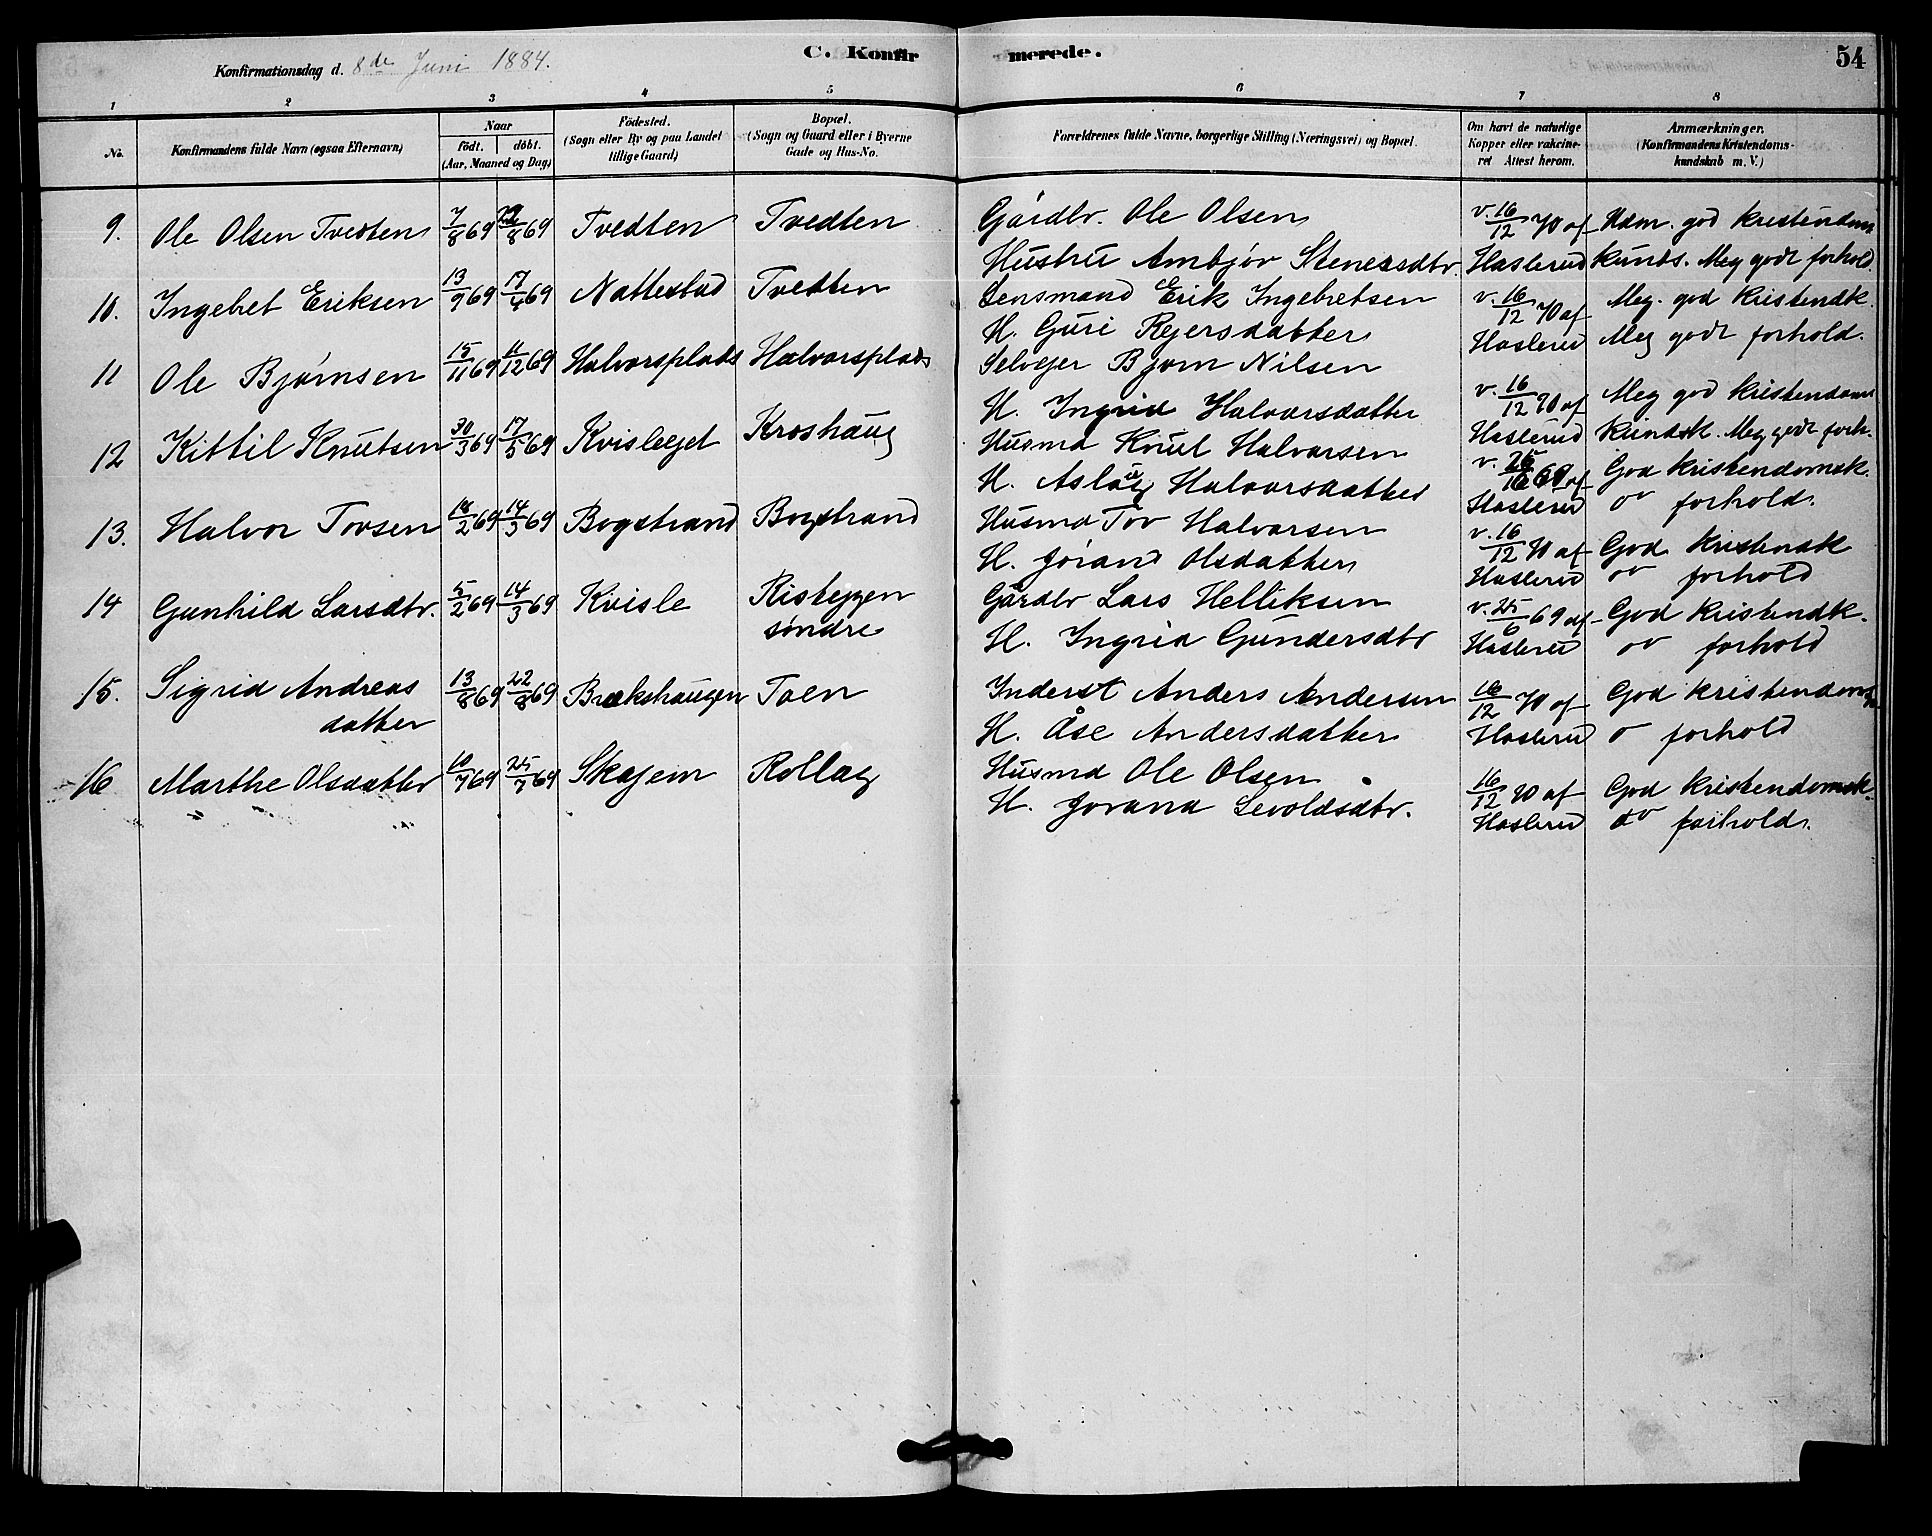 C. Konfirmerede. 54
Konfirmationsdag d. 8de Juni 1884.
1 2 3 4 5 6 7 8
No. Konfirmandens fulde Navn (ogsaa Efternavn) Naar födt. döbt. (Aar, Maaned og Dag) Födested. (Sogn eller By og paa Landet tillige Gaard) Bopæl. (Sogn og Gaard eller i Byerne Gade og Hus-No. Forældrenes fulde Navne, borgerlige Stilling (Næringsvei) og Bopæl. Om havt de naturlige Kopper eller vakcineret Attest herom. Anmærkninger. (Konfirmandens Kristendomskundskab m. V.)
9. Ole Olsen Tvedten 7/8 69 /8 69 Tvedten Tvedten Gårdbr. Ole Olsen v. 16/12 70 af Udm. god kristendoms
Hustru Ambjør Stenersdtr Haslerud kunds. Meg godt forhold
10. Ingebret Eriksen 13/9 69 17/ 69 Nattestad Tvedten Lensmand Erik Ingebretsen v. 16/12 70 af Meg. god kristendk.
H. Guri Rejersdatter Haslerud Meg godt forhold.
11 Ole Bjørnsen 15/11 69 11/12 69 Halvorsplads Halvorsplads Selvejer Bjørn Nilsen v. 16/12 70 af Meg god kristendoms
H. Ingrid Halvorsdatter Haslerud kundsk. Meg godt forh.
12 Kittil Knutsen 30/3 69 17/5 69 Kvisleejet Kroshaug Husmd Knut Halvorsen v. 25/6 69 af God kristendomsk.
H. Aslaug Halvorsdatter Haslerud og forhold.
13. Halvor Tovsen 18/2 69 14/3 69 Bogstrand Bogstrand Husmd Tov Halvorsen v. 16/12 70 af God kristendk
H. Jörand Olsdatter Haslerud og forhold
14 Gunhild Larsdtr. 5/2 69 14/3 69 Kvisle Risteggen Gårdbr Lars Helliksen v. 25/6 69 af God kristendk.
söndre H. Ingrid Gundersdtr Haslerud og forhold
15. Sigrid Andreas 13/8 69 22/8 69 Brækshaugen Toen Inderst Anders Andersen 16/12 70 af God kristendoms
datter H. Åse Andersdatter Haslerud o forhold
16 Marthe Olsdatter 10/7 69 25/7 69 Skajem Rollag Husmd Ole Olsen 16/12 70 af God kristendomsk.
H. Jorand Levoldsdtr. Haslerud og forhold.